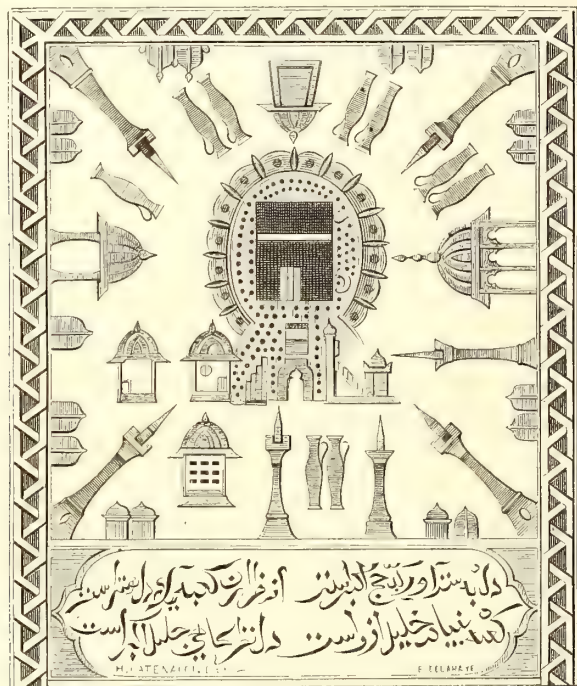 دل بدست آور که حج اکبرست از هزاران کعبه یکدل بهترست
کعبه بنیاد خلیل ازرست دل نظرکاه جلیل اکبراست
H. CATENACCI
DELAHAYE